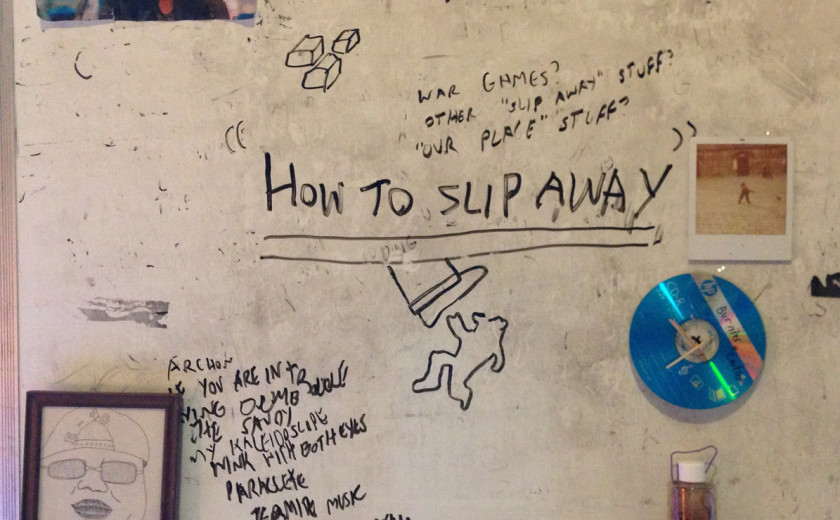 WAR GAMES?
OTHER "SLIP AWAY" STUFF?
"OUR PLACE" STUFF?
HOW TO SLIP AWAY
CD-R
hp
ARCHON
IF YOU ARE IN TROUBLE
THE SAVOY
MY KALEIDOSCOPE
WINK WITH BOTH EYES
PARACLETE
MUSIC